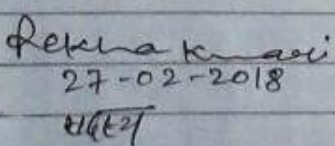 Rekha Kumari
27-02-2018
सदस्य